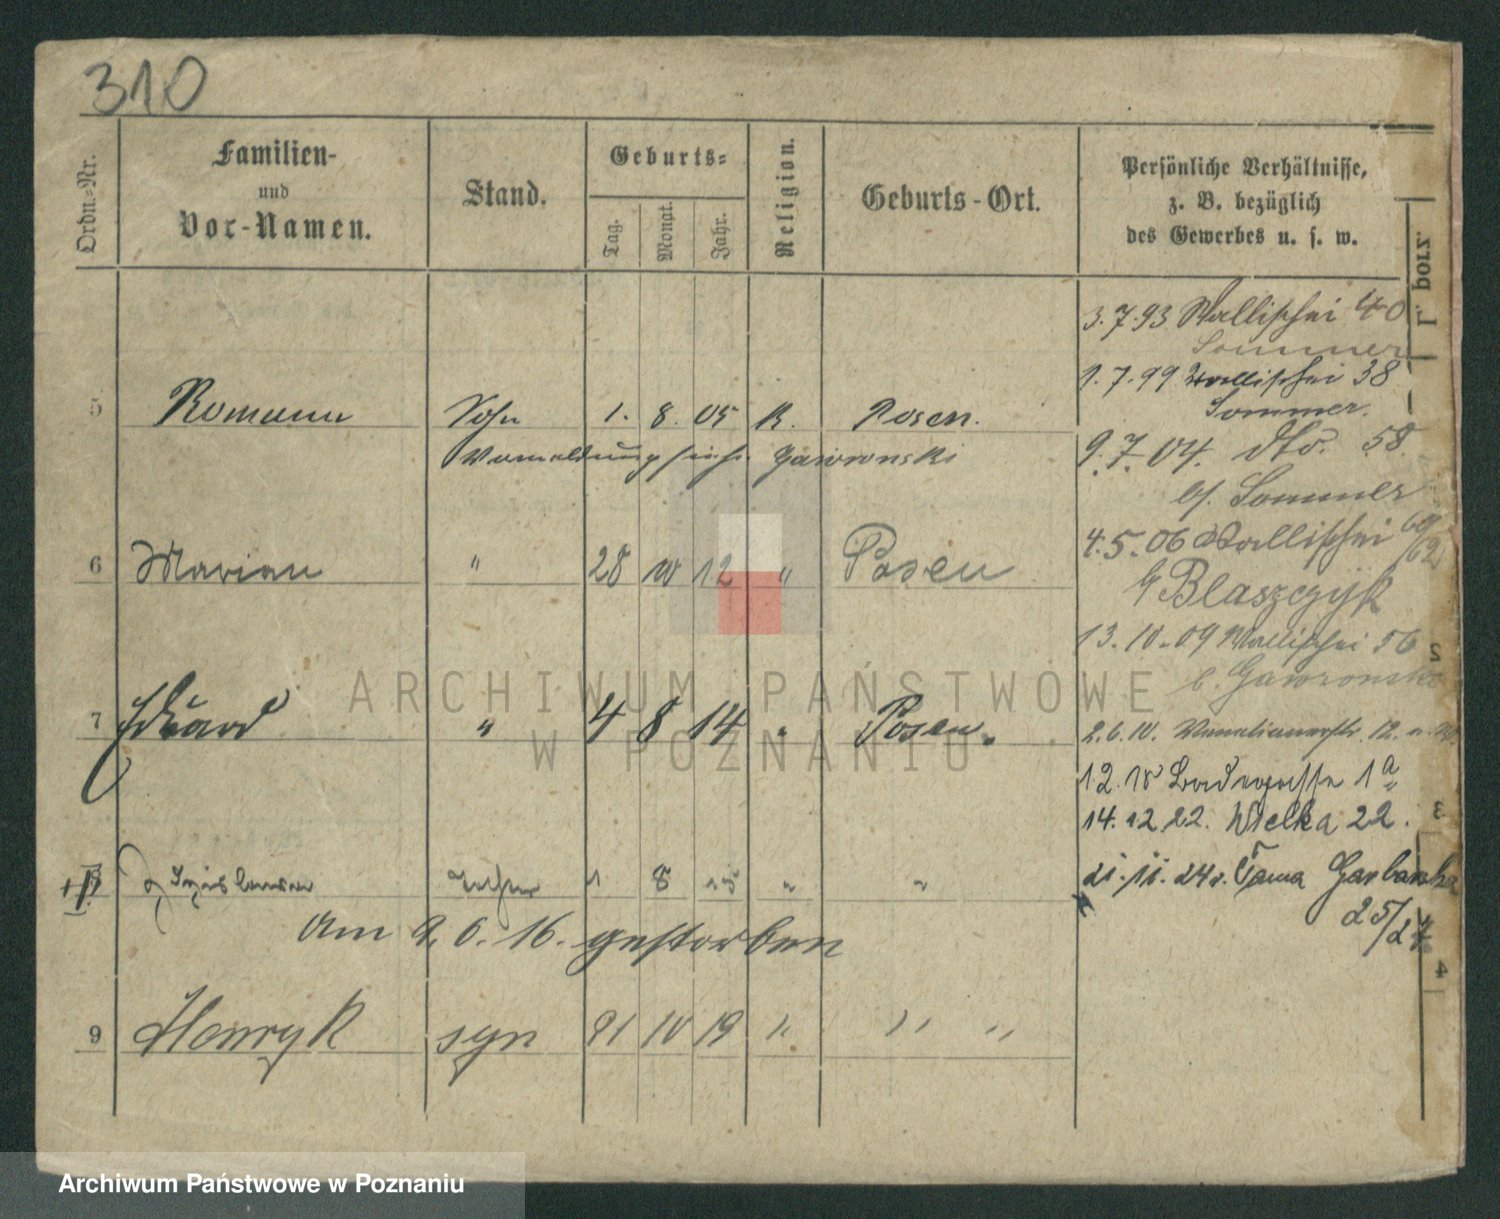 310
Ordn.-Nr.
Familien-
und
Vor-Namen.
Stand.
Geburts-
Tag.
Monat.
Jahr.
Religion.
Geburts-Ort.
Persönliche Verhältnisse,
z. B. bezüglich
des Gewerbes u. s. w.
L. porz.
3.7.93 Wallischei 40
Sommer
1.7.99 Wallischei 38
Sommer.
5 Romann Sohn 1. 8. 05 K. Posen.
Gawronski
9.7.04. dto. 58.
b/. Sommer
4.5.06 Wallischei 60/62
b/ Blaszczyk
6 Marian " 28 10 12 " Posen
13.10.09 Wallischei 56
b. Gawronski
2
7 Eduard " 4 8 14 " Posen.
2.6.10. 12.
12.18 Badegasse 1a
14.12.22. Wielka 22.
3
Tochter 1 8 15 " "
21.11.24 r. Tama Garbarska
25/27
Am 9.6.16. gestorben
4
9 Henryk syn 21 10 19 " " "
ARCHIWUM PAŃSTWOWE
W POZNANIU
Archiwum Państwowe w Poznaniu